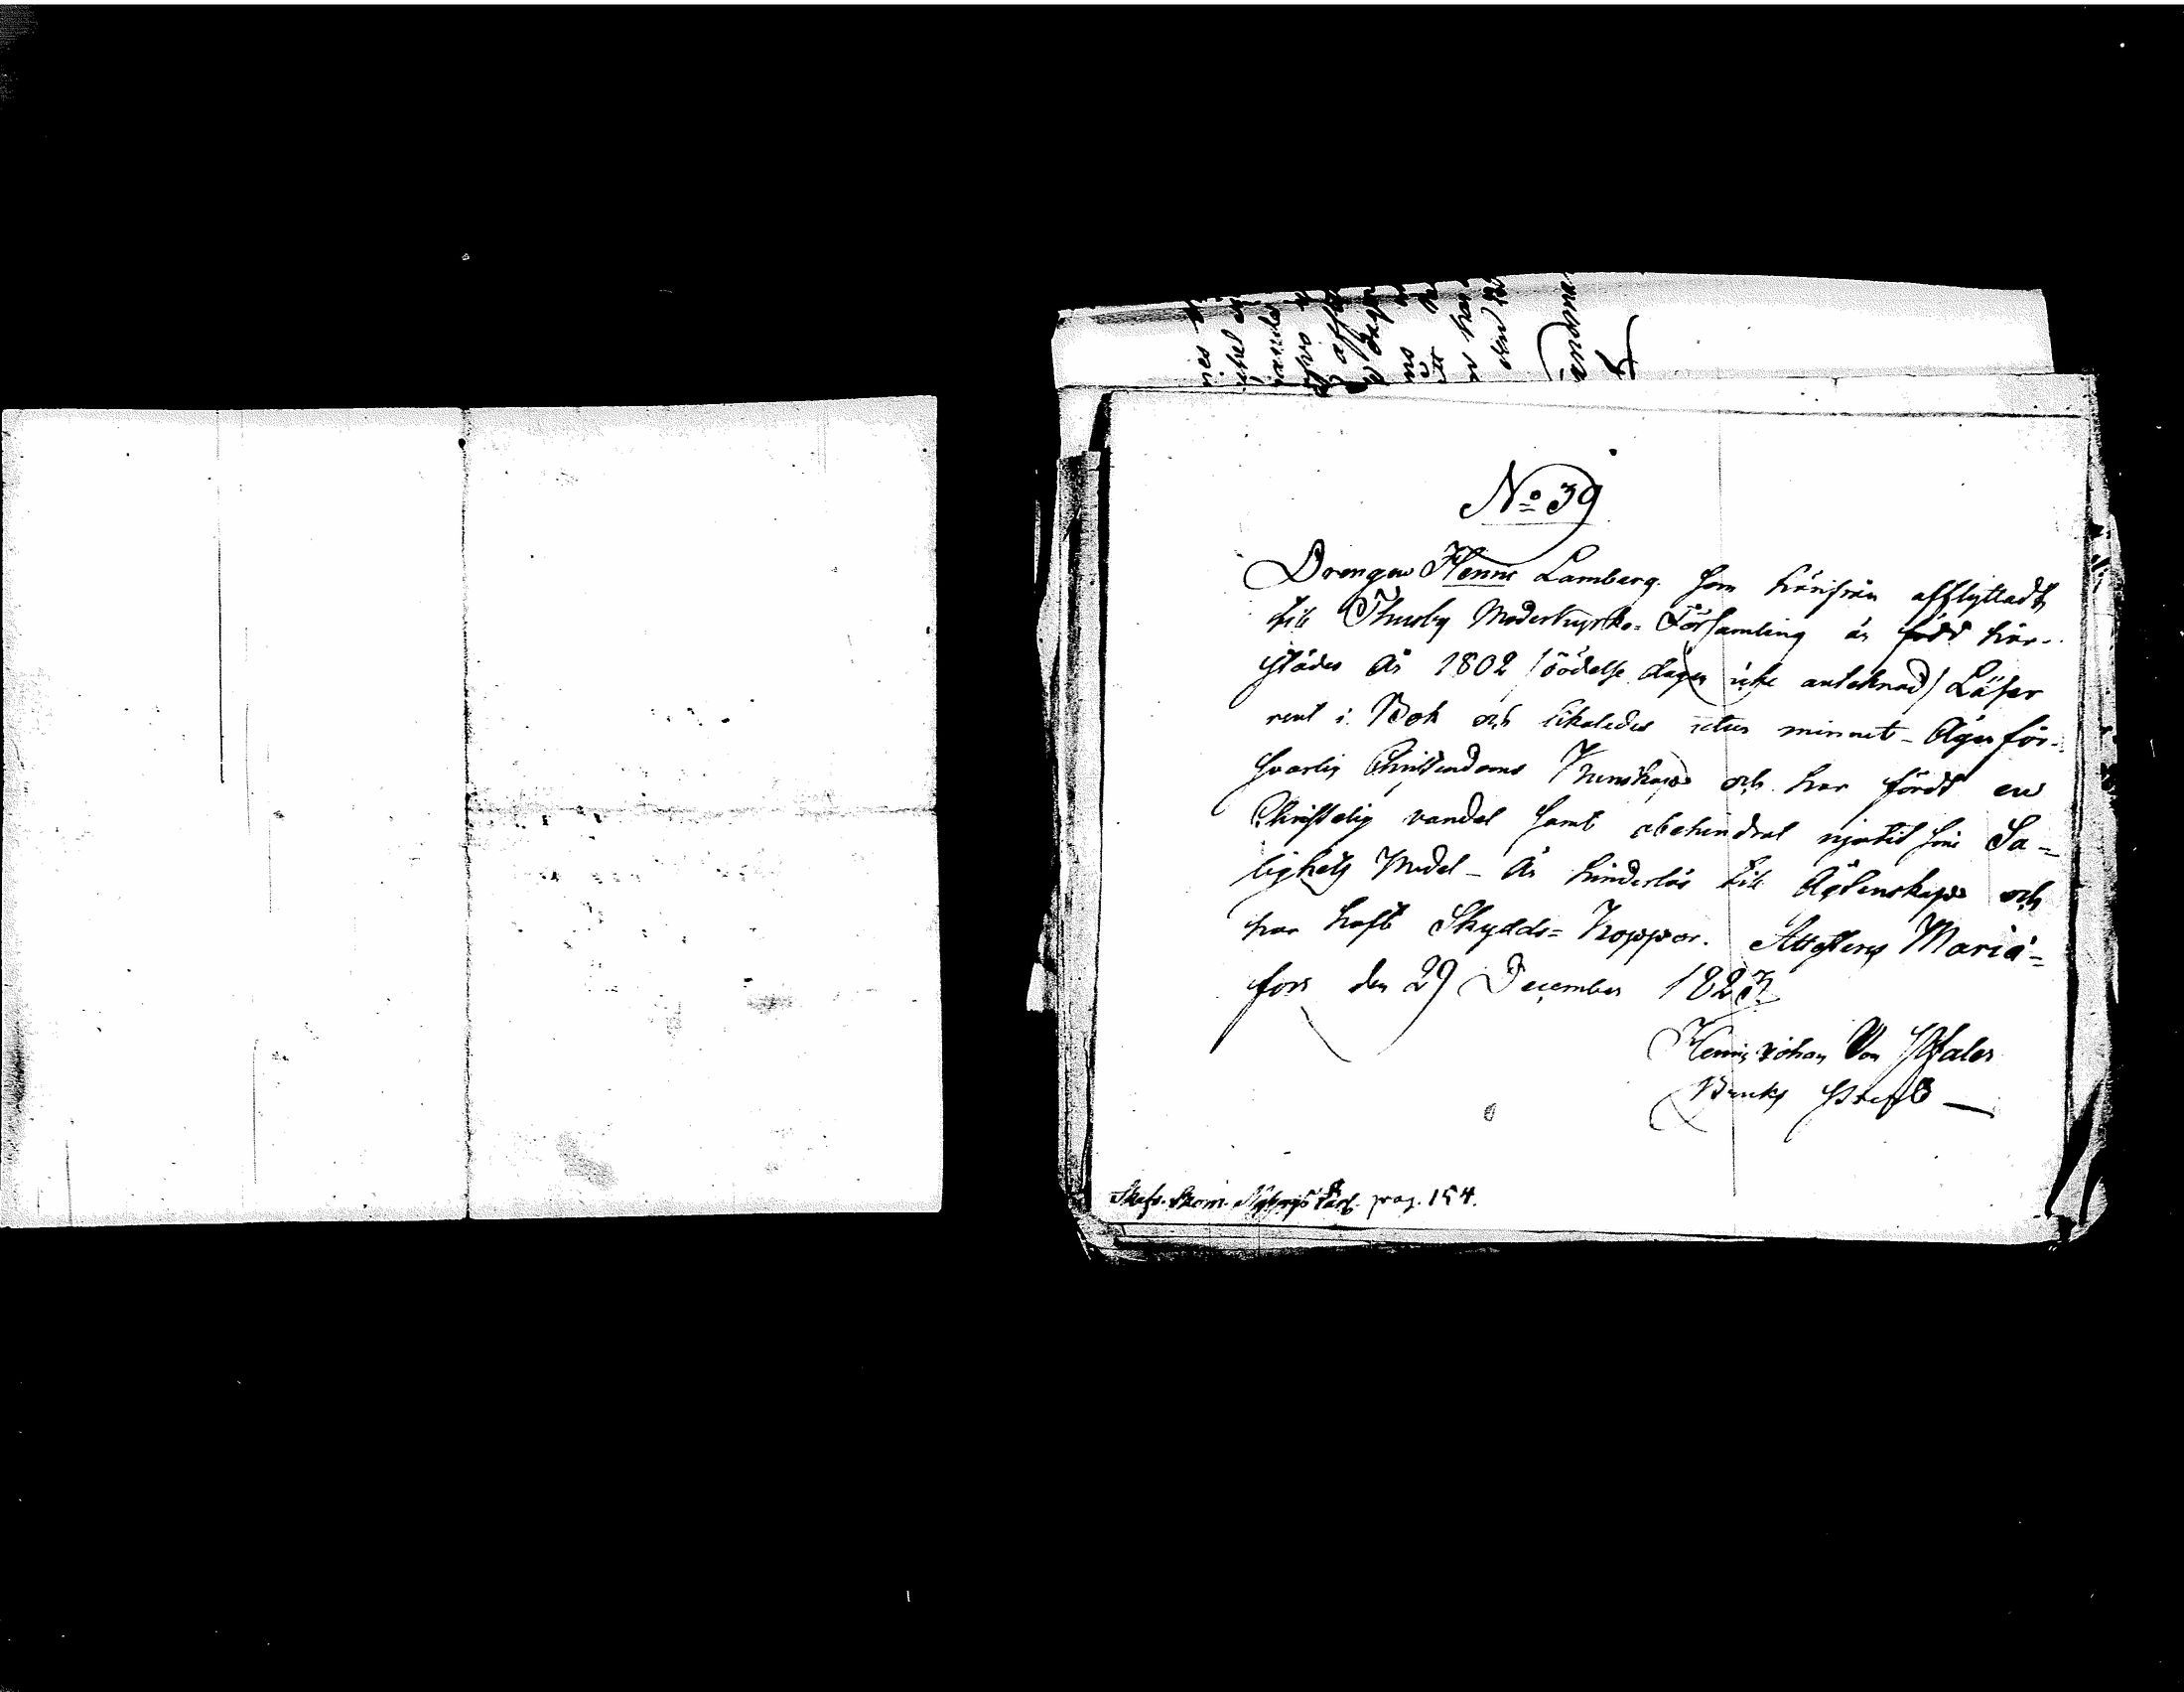 No 39
Drengen Henric Lamberg. som härifrån afflyttadt
till Thusby Moderkyrko= Församling är född här-
städes År 1802 /födelse dagen icke anteknad/ Läser
rent i Bok och likaledes utur minnet – Äger för-
svarlig Christendoms Kunskap och har fördt en
Christelig vandel samt obehindrat njutit sine Sa=
lighets Medel – Är hinderlös till Ägtenskap och
har haft Skydds= Koppor. Attesteras Maria=
fors den 29 December 1827
Henric Johan Von Pfaler
Bruks Prest
pag. 154.